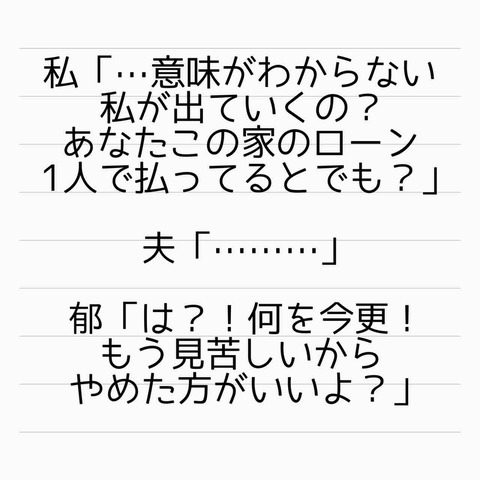 私「…意味がわからない
私が出ていくの？
あなたこの家のローン
1人で払ってるとでも？」
夫「………」
郁「は？！何を今更！
もう見苦しいから
やめた方がいいよ？」